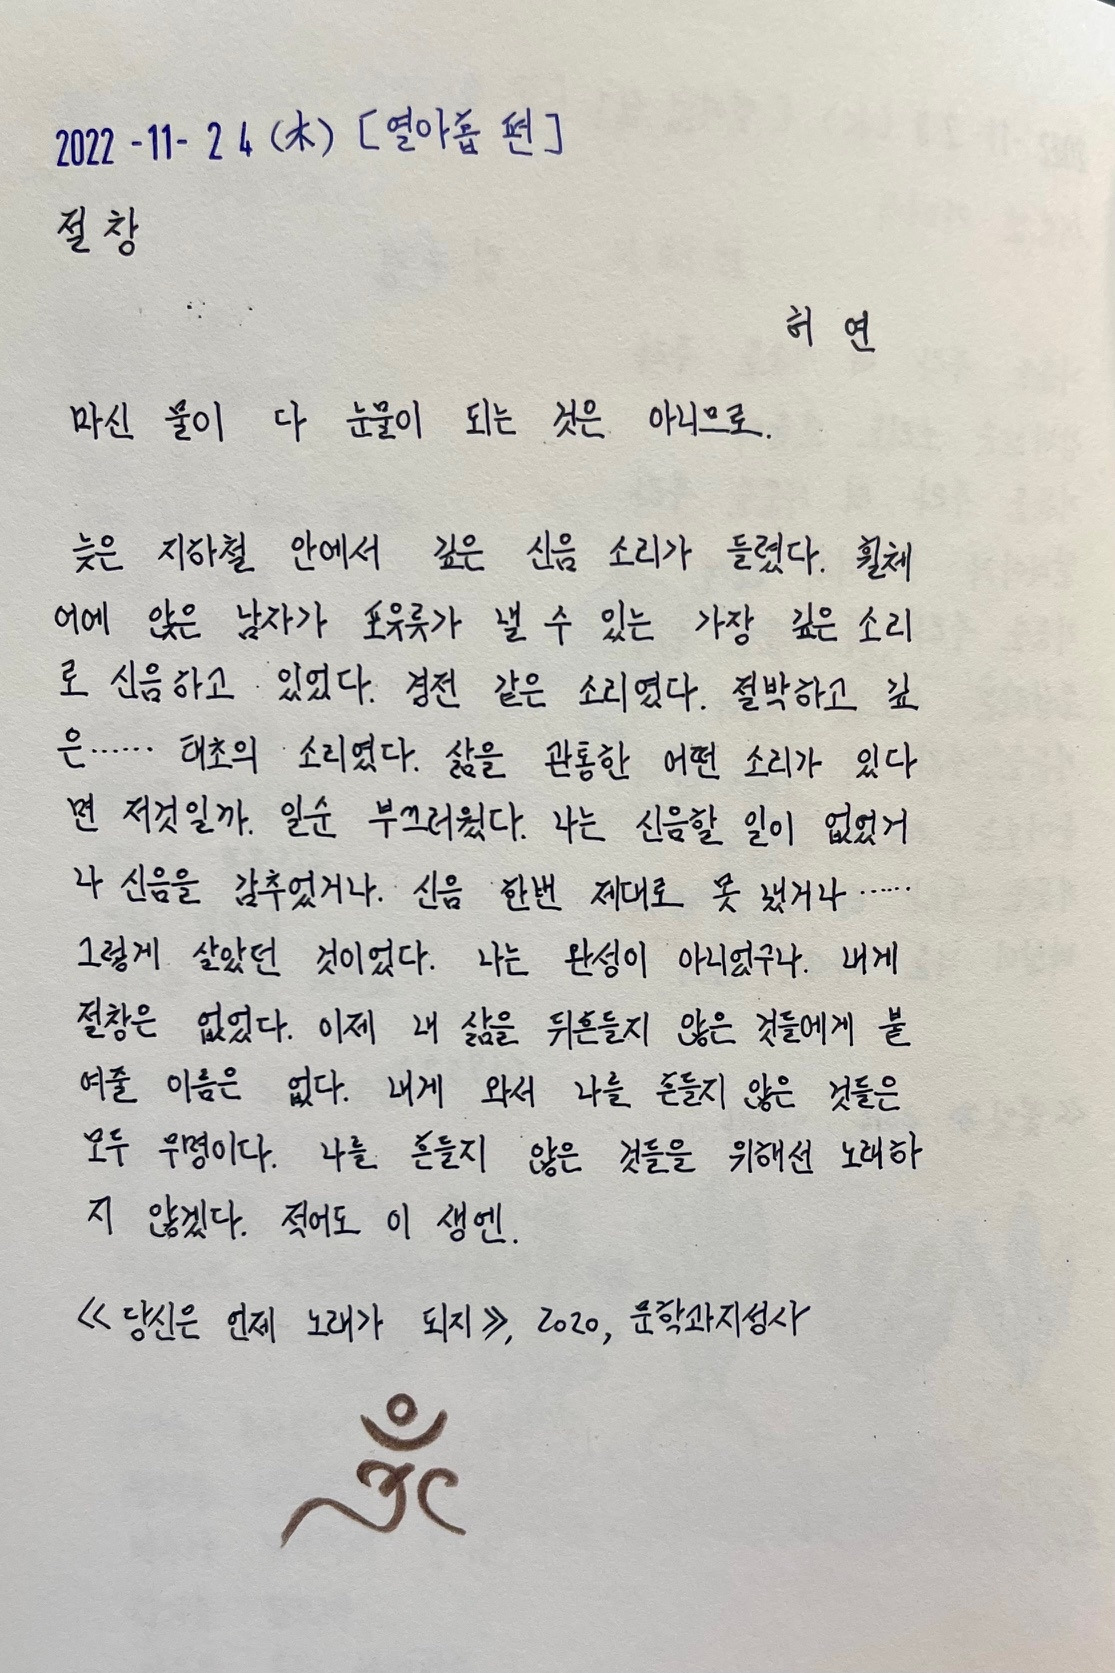 2022-11-24 (木) [열아홉 편]
절창
허 연
마신 물이 다 눈물이 되는 것은 아니므로.
늦은 지하철 안에서 깊은 신음 소리가 들렸다. 휠체
어에 앉은 남자가 포유류가 낼 수 있는 가장 깊은 소리
로 신음하고 있었다. 경전 같은 소리였다. 절박하고 깊
은…… 태초의 소리였다. 삶을 관통한 어떤 소리가 있다
면 저것일까. 일순 부끄러웠다. 나는 신음할 일이 없었거
나 신음을 감추었거나. 신음 한번 제대로 못 냈거나……
그렇게 살았던 것이었다. 나는 완성이 아니었구나. 내게
절창은 없었다. 이제 내 삶을 뒤흔들지 않은 것들에게 붙
여줄 이름은 없다. 내게 와서 나를 흔들지 않은 것들은
모두 무명이다. 나를 흔들지 않은 것들을 위해선 노래하
지 않겠다. 적어도 이 생엔.
《당신은 언제 노래가 되지》, 2020, 문학과지성사
ॐ